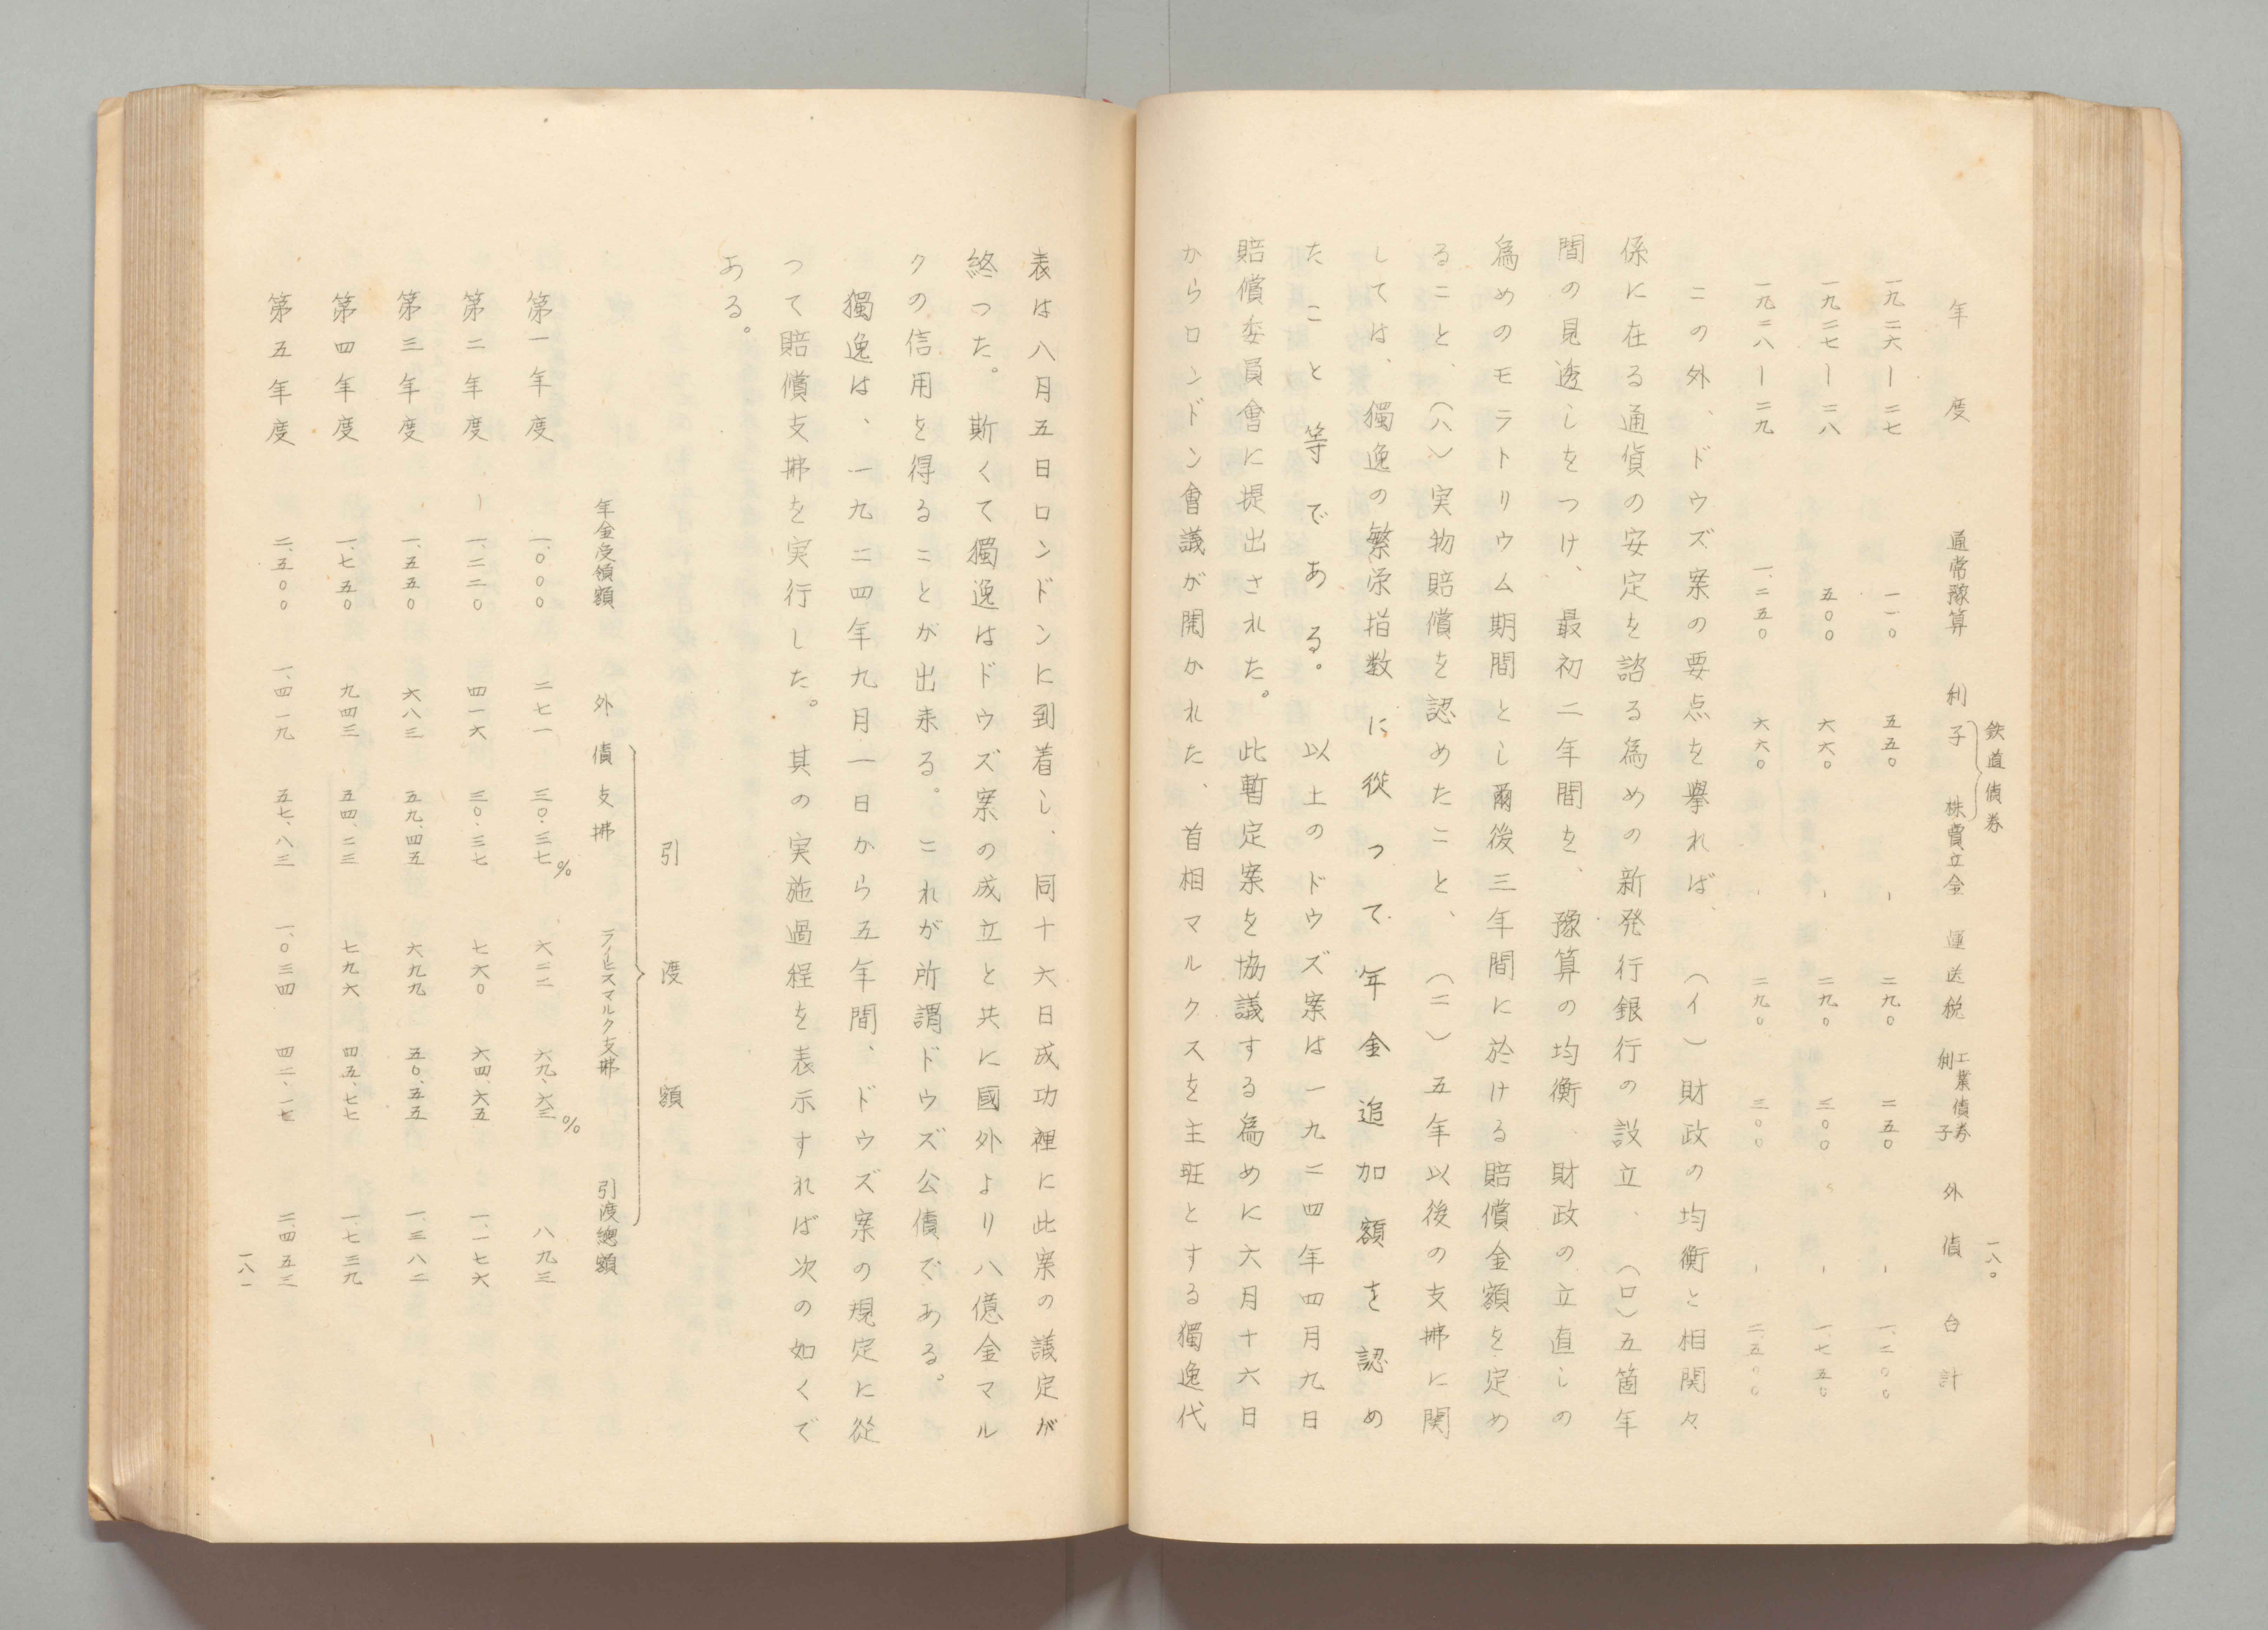 一八〇
鉄道債券
年度　通常豫算　利子　株賣立金　運送税　工業債券利子　外債　合計
一九二六ー二七　一一〇　五五〇　ー　二九〇　二五〇　ー　一、二〇〇
一九二七ー二八　五〇〇　六六〇　ー　二九〇　三〇〇　ー　一、七五〇
一九二八ー二九　一、二五〇　六六〇　ー　二九〇　三〇〇　ー　二、五〇〇
この外、ドウズ案の要点を擧れば、（イ）財政の均衡と相関々
係に在る通貨の安定を諮る為めの新発行銀行の設立、（ロ）五箇年
間の見透しをつけ、最初二年間を、豫算の均衡、財政の立直しの
為めのモラトリウム期間とし爾後三年間に於ける賠償金額を定め
ること、（ハ）実物賠償を認めたこと、（ニ）五年以後の支拂に関
しては、獨逸の繁栄指数に從つて年金追加額を認め
たこと等である。以上のドウズ案は一九二四年四月九日
賠償委員會に提出された。此暫定案を協議する為めに六月十六日
からロンドン會議が開かれた、首相マルクスを主班とする獨逸代
表は八月五日ロンドンに到着し、同十六日成功裡に此案の議定が
終つた。斯くて獨逸はドウズ案の成立と共に國外より八億金マル
クの信用を得ることが出来る。これが所謂ドウズ公債である。
獨逸は、一九二四年九月一日から五年間、ドウズ案の規定に從
つて賠償支拂を実行した。其の実施過程を表示すれば次の如くで
ある。
引渡額
年金受領額　外債支拂　ライヒスマルク支拂　引渡總額
第一年度　一、〇〇〇　二七一　三〇・三七%　六二二　六九、六三%　八九三
第二年度　一、二二〇　四一六　三〇・三七　七六〇　六四、六五　一、一七六
第三年度　一、五五〇　六八三　五九、四五　六九九　五〇、五五　一、三八二
第四年度　一、七五〇　九四三　五四、二三　七九六　四五、七七　一、七三九
第五年度　二、五〇〇　一、四一九　五七、八三　一、〇三四　四二、一七　二、四五三
一八一